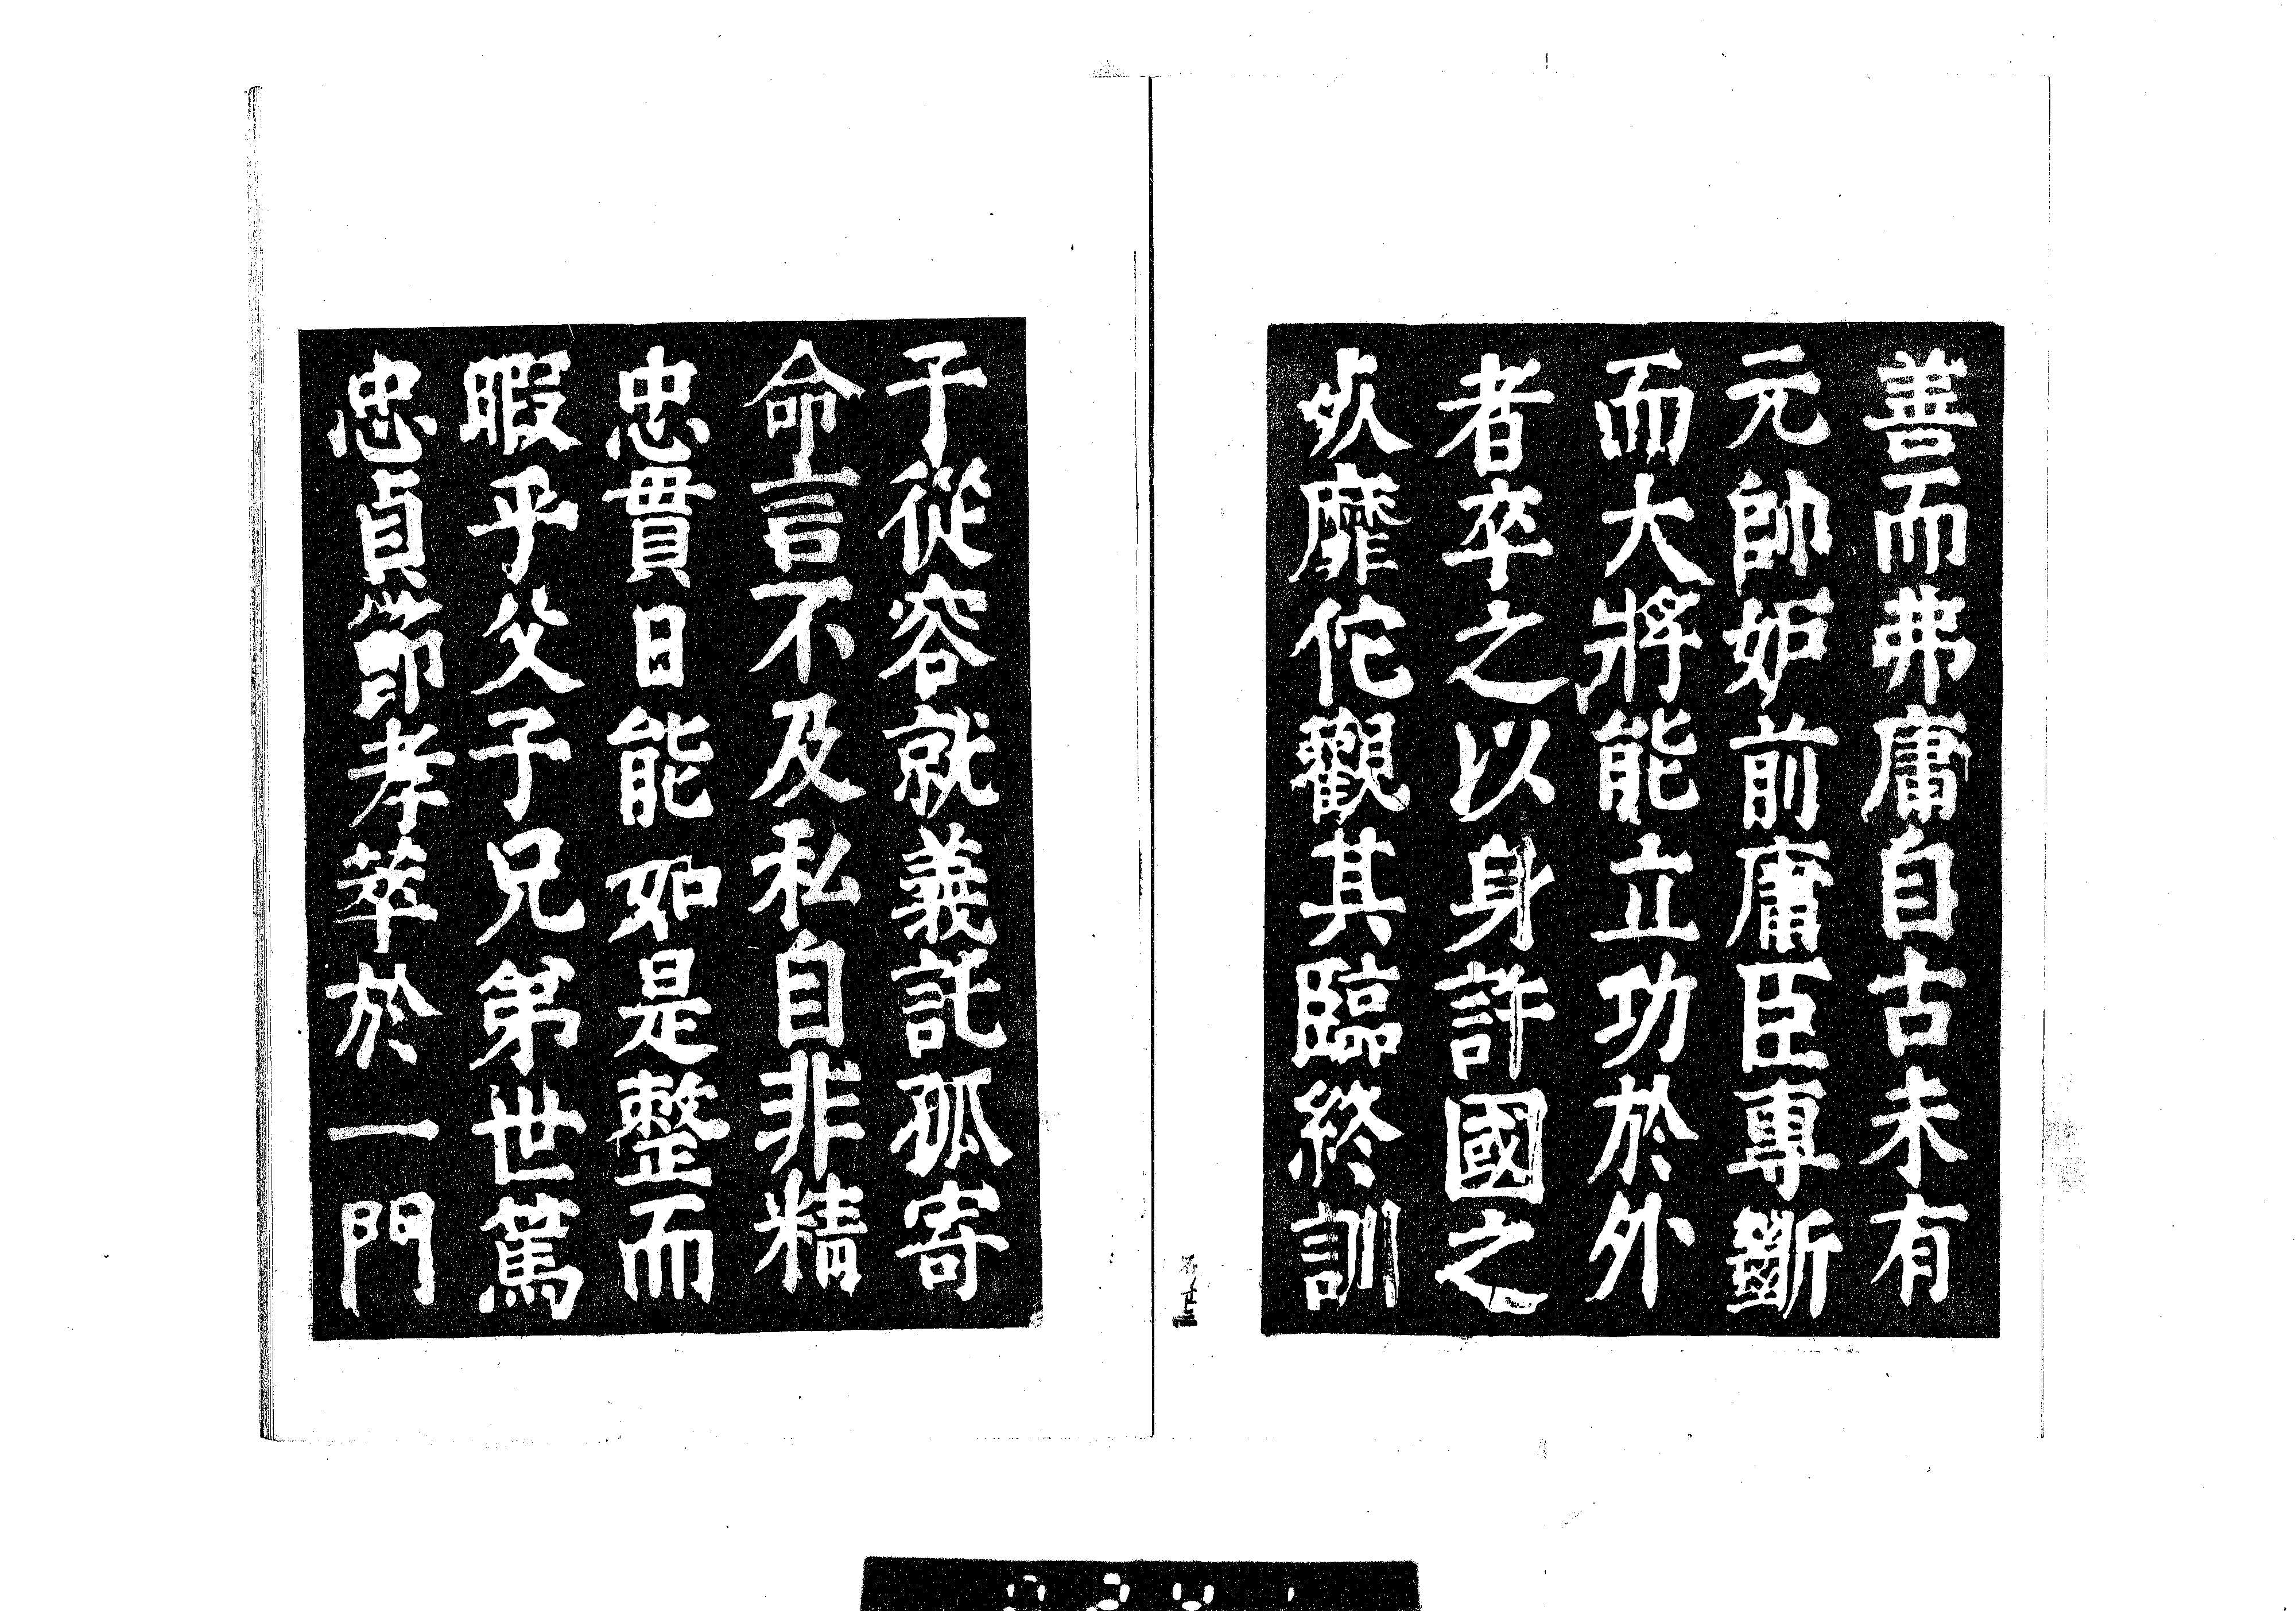 善而弗庸自古未有
元帥妒前庸臣專斷
而大將能立功於外
者卒之以身許國之
死靡佗觀其臨終訓
子從容就義託孤寄
命言不及私自非精
忠貫日能如是整而
暇乎父子兄弟世篤
忠貞節孝萃於一門